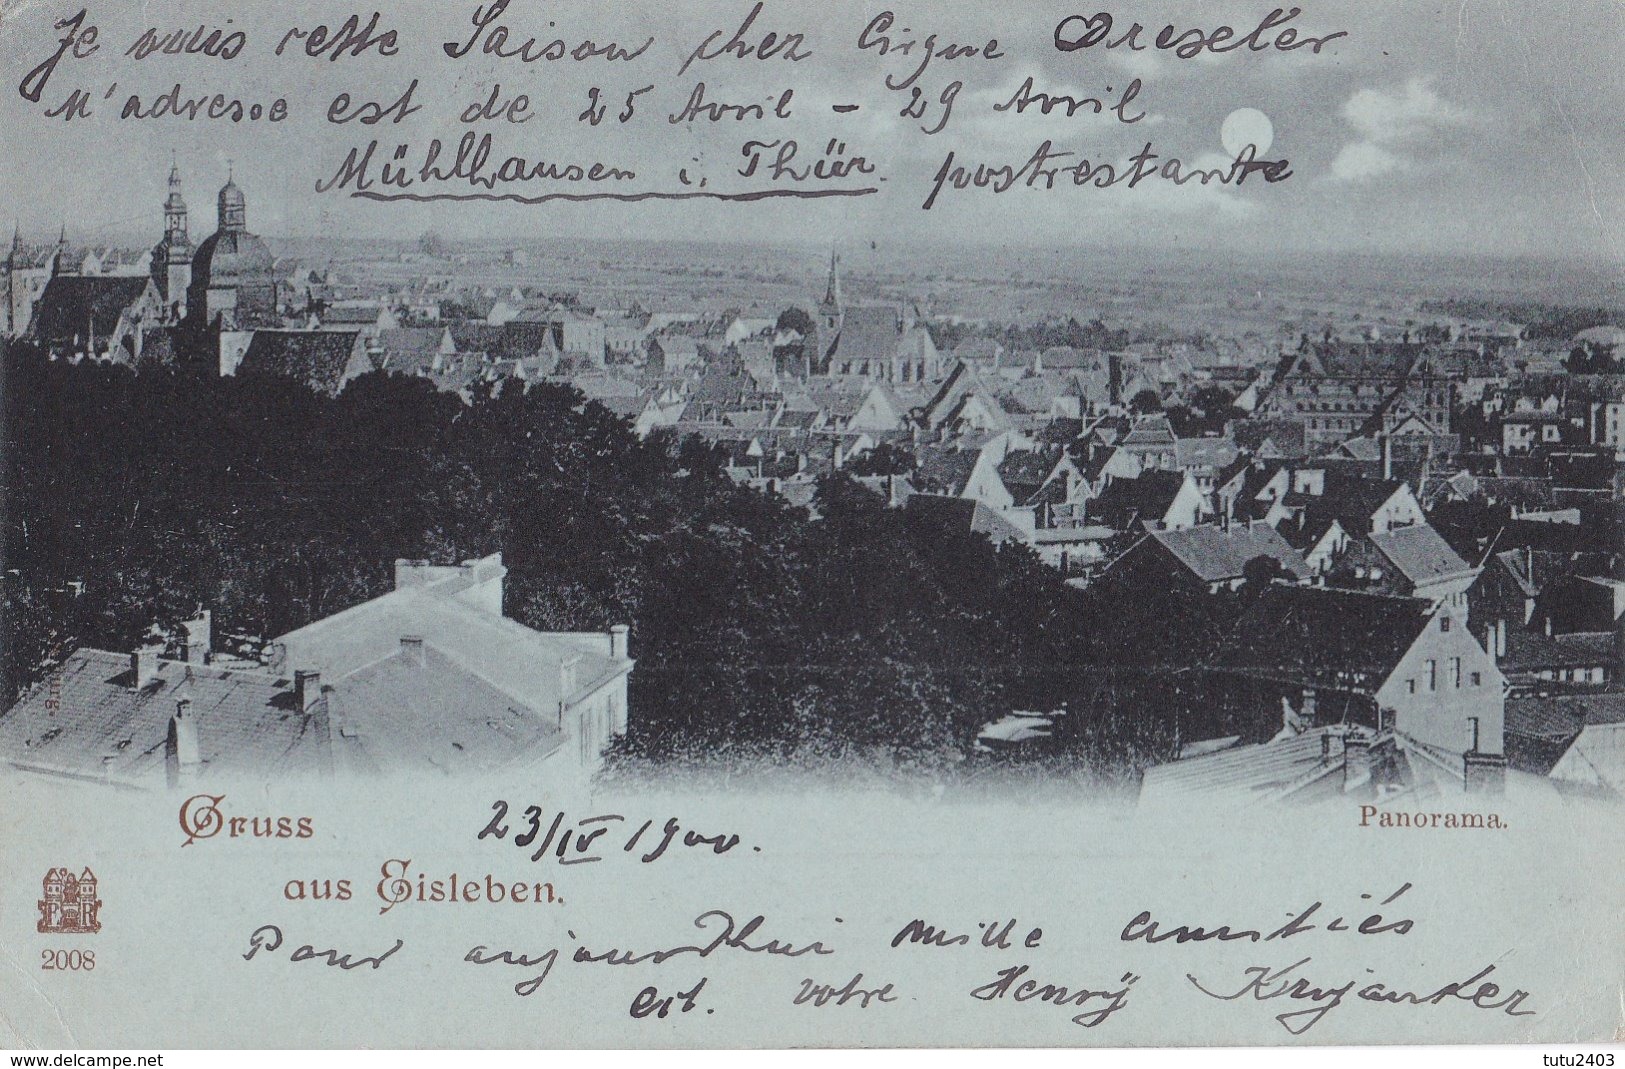 Je vais cette Saison chez Cirque Drexler.
M'adresse est de 25 Avril – 29 Avril
Mühlhausen i. Thür. postrestante
Gruss
aus Eisleben.
23/IV 1900.
Panorama.
P R
2008
Pour aujourd'hui mille amitiés
ect. votre Henrÿ
www.delcampe.net
tutu2403